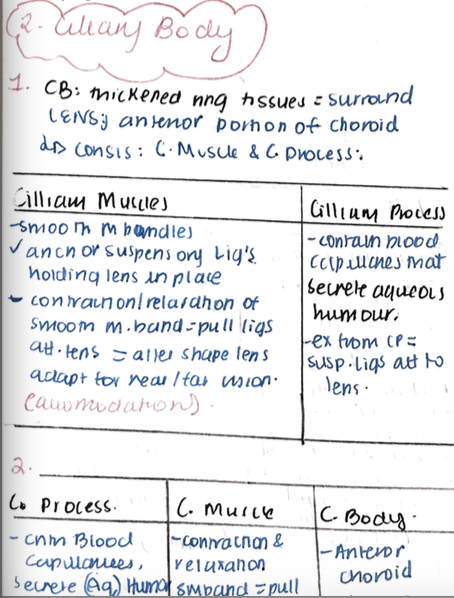 2. Ciliary Body
1. CB: thickened ring tissues = surround
LENS; anterior portion of choroid
↳ consis: C. Muscle & C. Process:
Cilliam Muscles
-smooth m bandles
✓ anchor suspensory Lig's
holding lens in place
- contraction/relaxation of
smooth m. band = pull ligs
att. lens = alter shape lens
adapt for near/far vision.
(accomodation).
Cilliam Process
-contain blood
capillaries that
secrete aqueous
humour.
-ex from CP =
susp. ligs att to
lens.
2.
C. Process.
- cntn Blood
Capillaries,
secrete (Aq) Humor
C. Muscle
-contraction &
relaxation
smband = pull
C. Body.
-Anterior
choroid